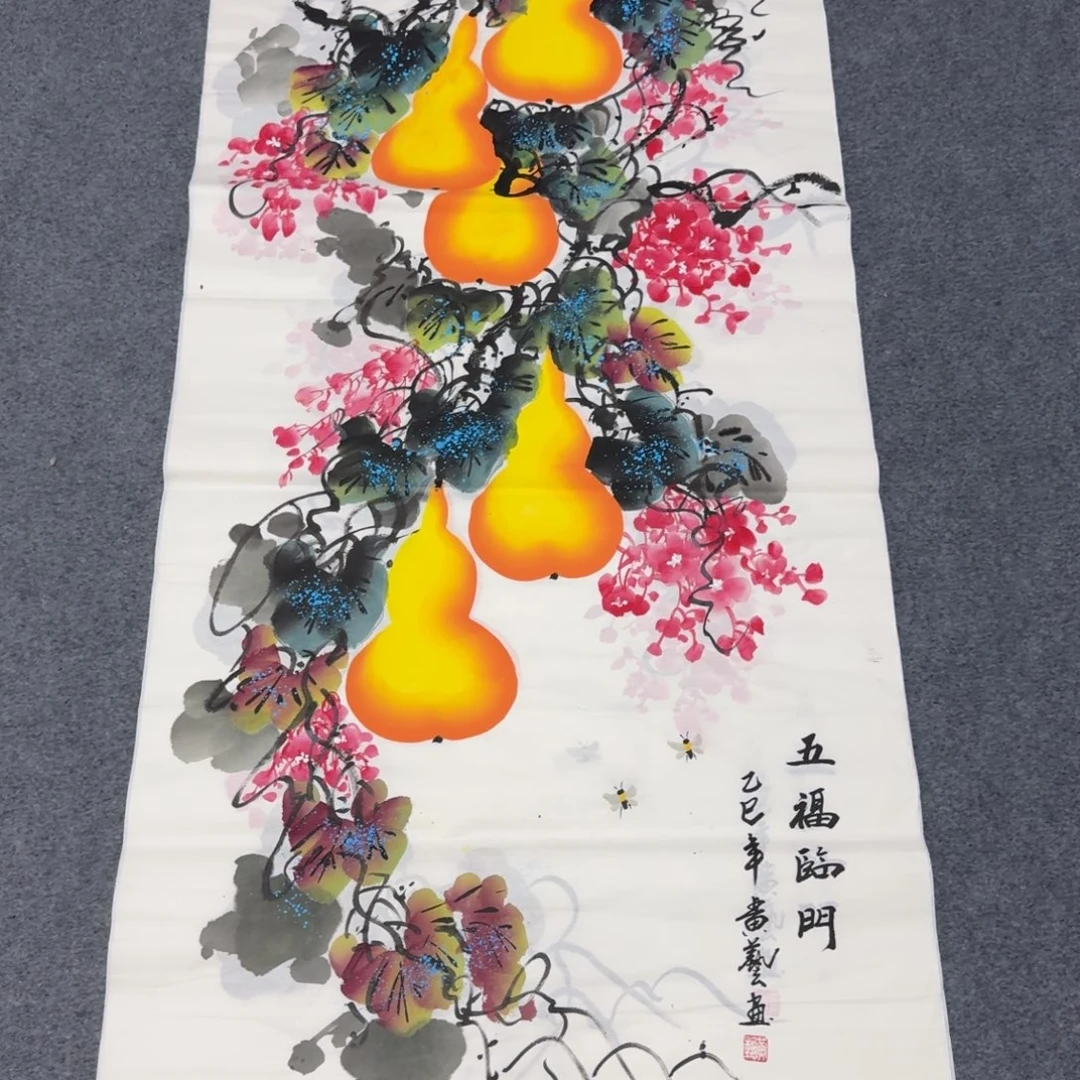 五福臨門
乙巳年黄藝畫